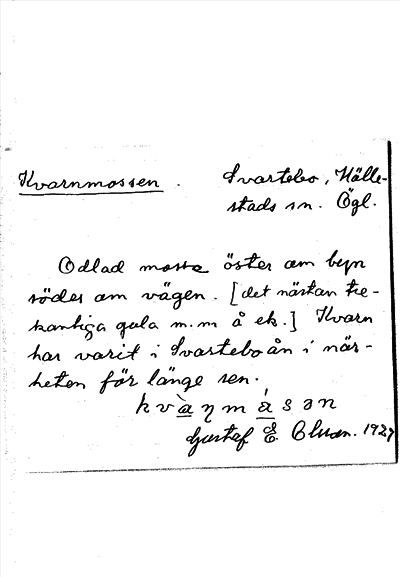 Kvarnmossen. Svartebo, Hälle-
stads sn. Ögl.
Odlad mosse öster om byn
söder om vägen. [det nästan tre-
kantiga gula m.m å ek.] Kvarn
har varit i Svarteboån i när-
heten för länge sen.
kvàɳmásən
Gustef E. 1927